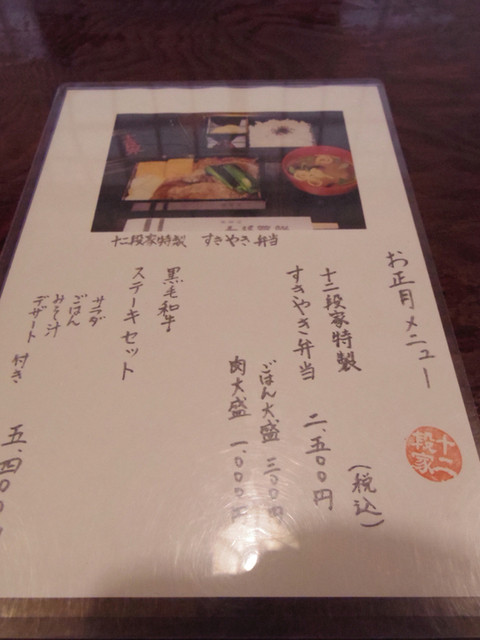 十二段家特製 すきやき弁当
お正月メニュー
(税込)
十二段家特製
すきやき弁当 二、五〇〇円
ごはん大盛 三〇〇円
肉大盛 一、〇〇〇円
黒毛和牛
ステーキセット
サラダ
ごはん
みそ汁
デザート 付き
五、四〇〇
十二
段家